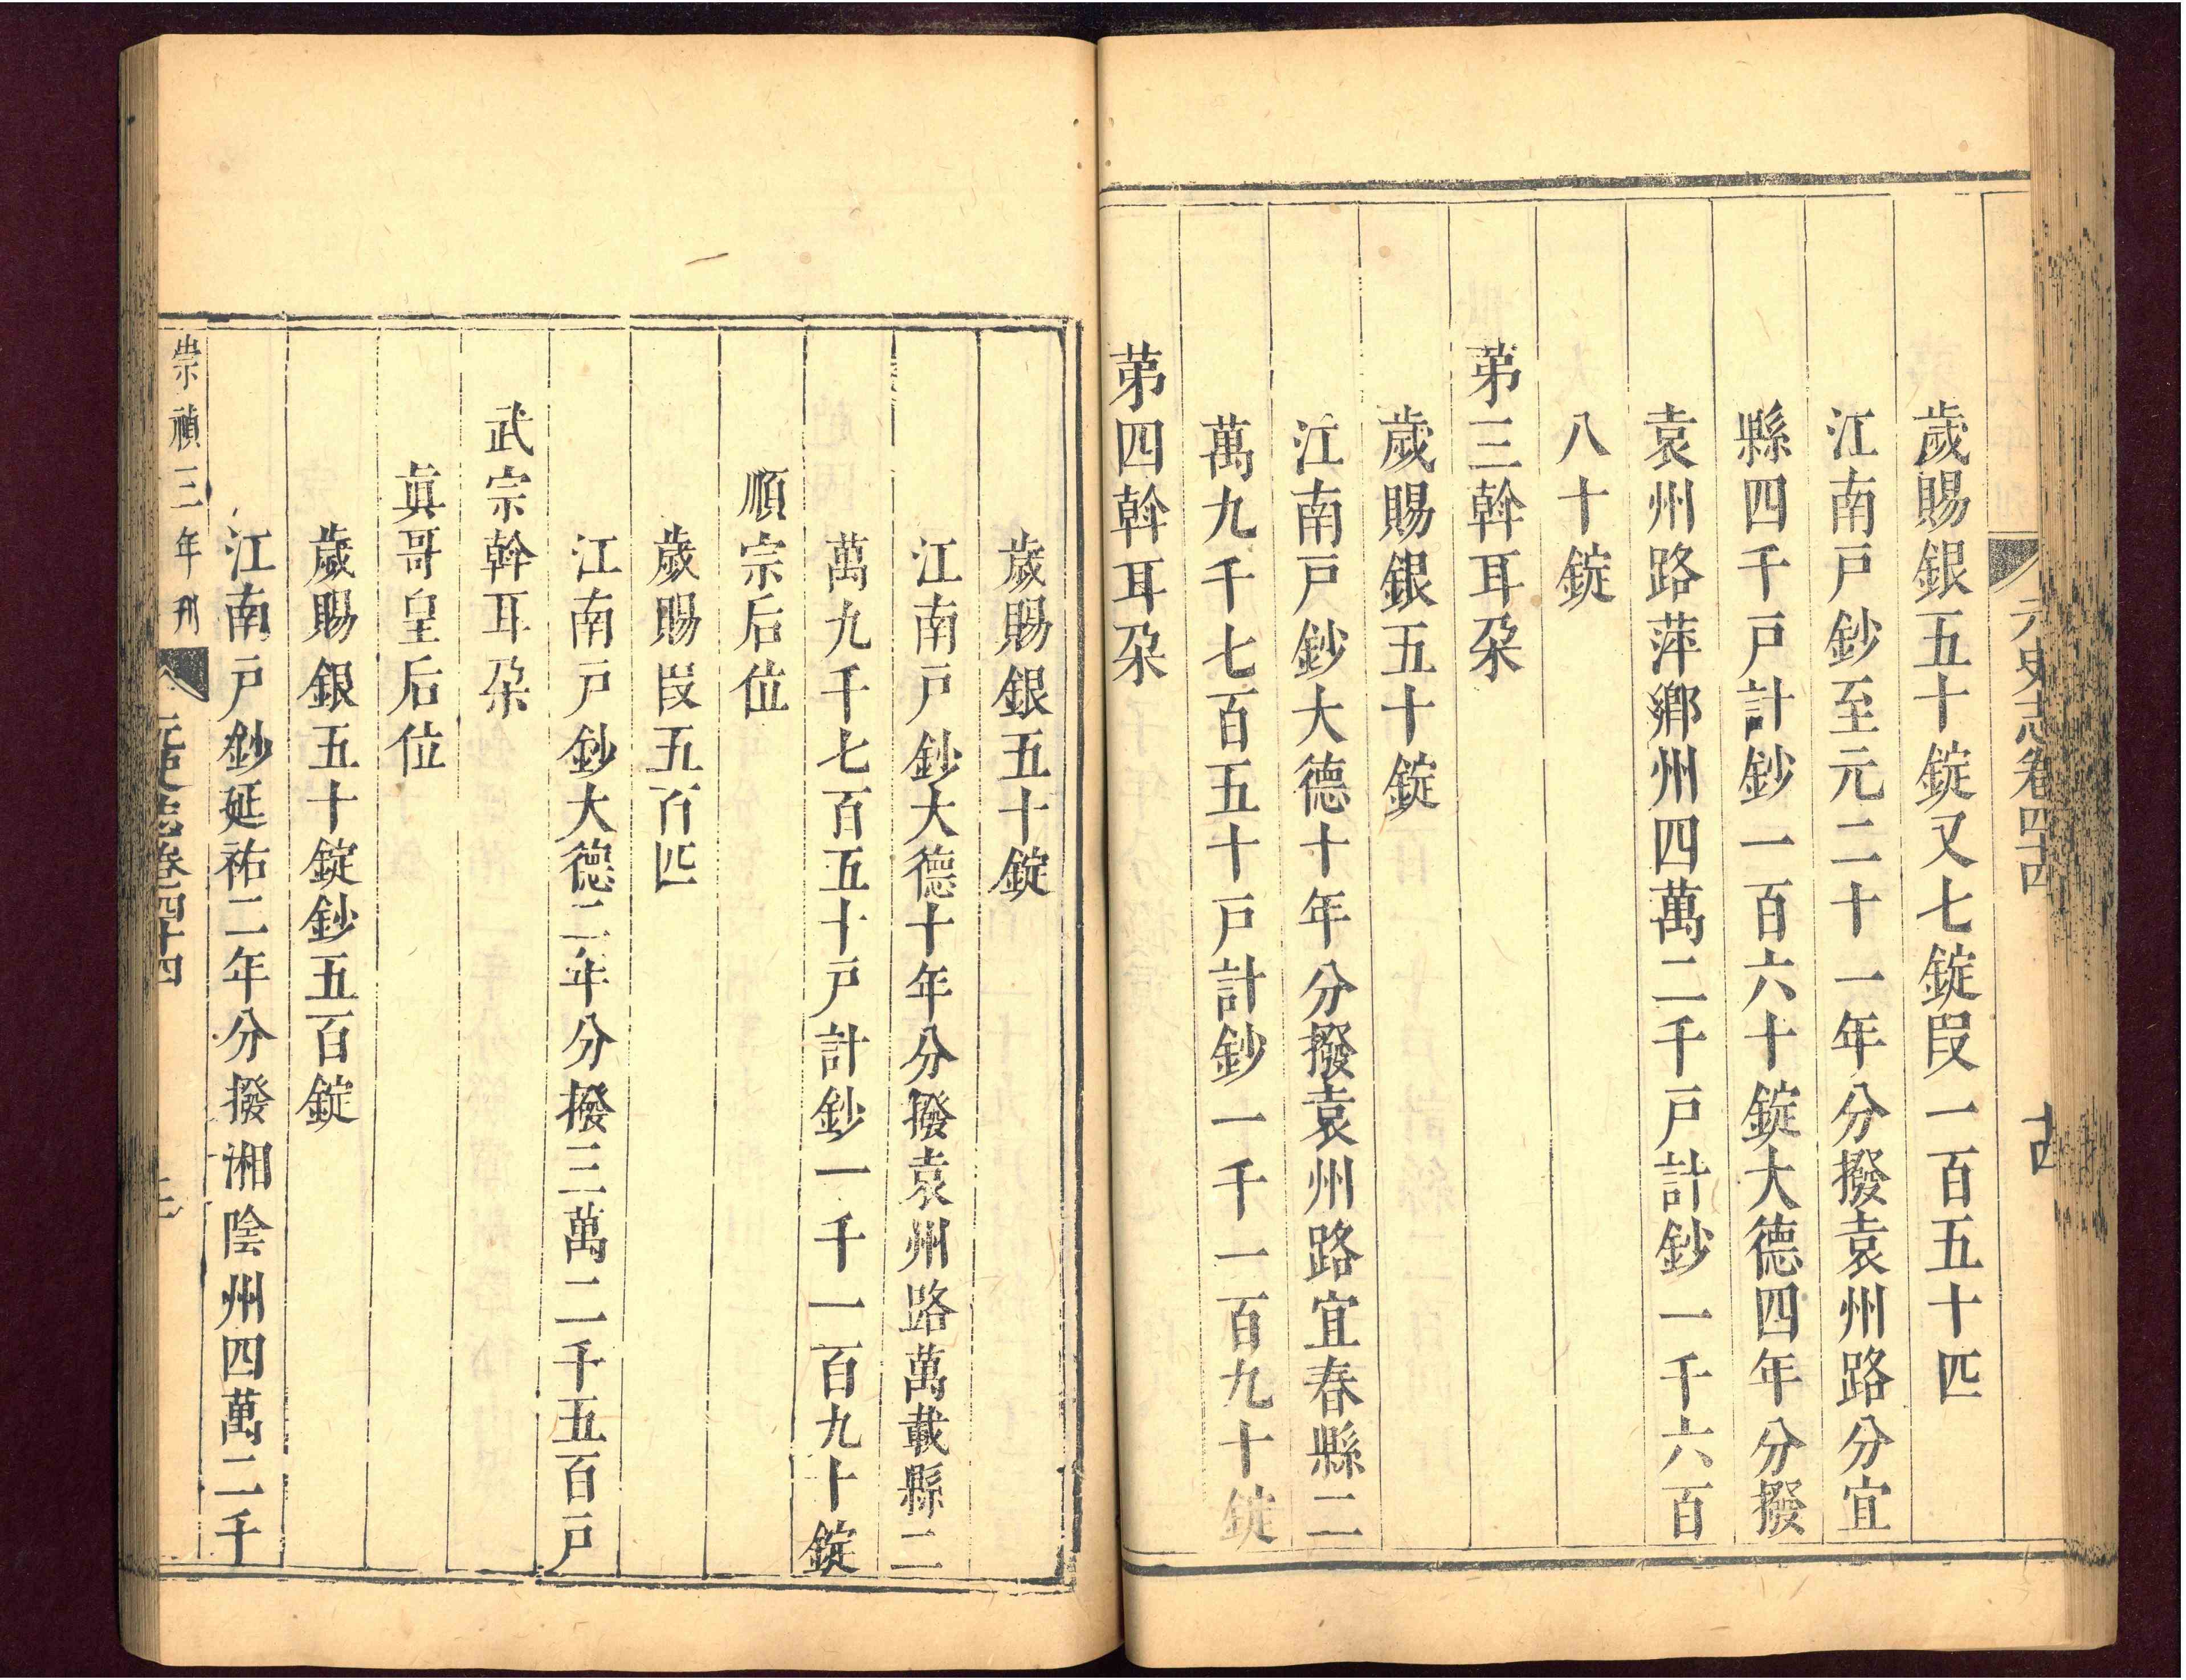 元史志卷四十四
十四
歲賜銀五十錠又七錠段一百五十匹
江南戸鈔至元二十一年分撥袁州路分宜
縣四千戸計鈔一百六十錠大德四年分撥
袁州路萍鄉州四萬二千戸計鈔一千六百
八十錠
苐三斡耳朶
歲賜銀五十錠
江南戸鈔大德十年分撥袁州路宜春縣二
萬九千七百五十戸計鈔一千一百九十錠
苐四斡耳朶
歲賜銀五十錠
江南戸鈔大德十年分撥袁州路萬載縣二
萬九千七百五十戸計鈔一千一百九十錠
順宗后位
歲賜段五百匹
江南戸鈔大德二年分撥三萬二千五百戸
武宗斡耳朶
眞哥皇后位
歲賜銀五十錠鈔五百錠
江南戸鈔延祐二年分撥湘陰州四萬二千
崇禎三年刊
元史志卷四十四